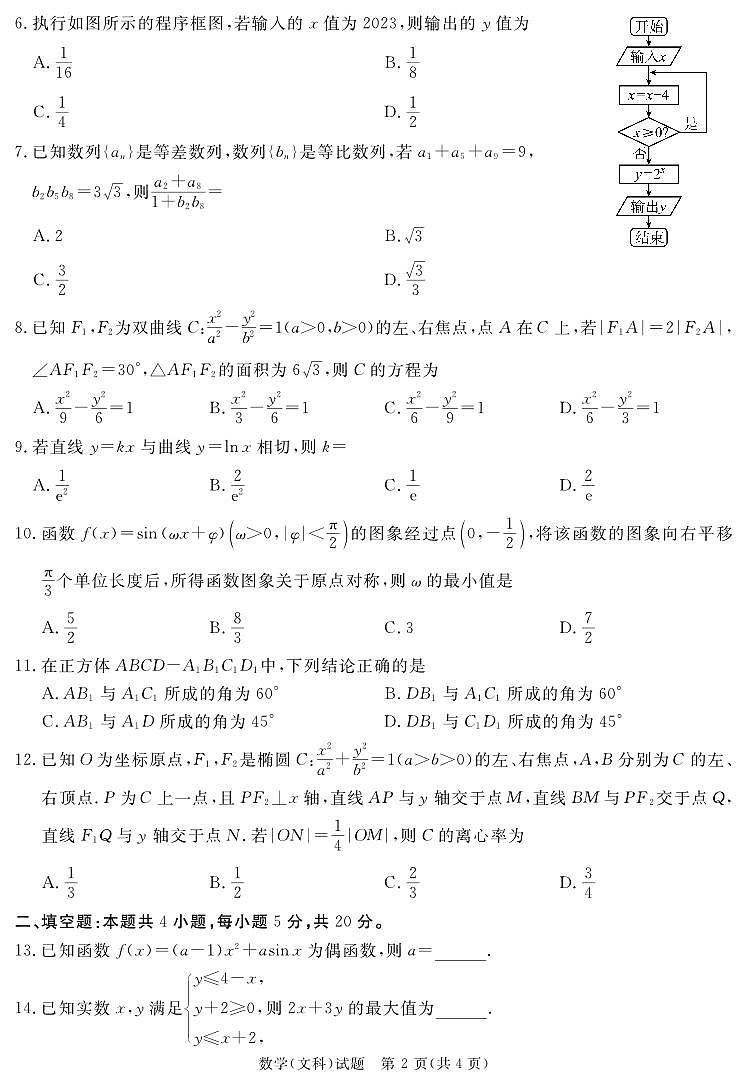 6. 执行如图所示的程序框图,若输入的 x 值为 2023,则输出的 y 值为
A. 1/16 B. 1/8
C. 1/4 D. 1/2
开始
输入x
x=x-4
x≥0?
是
否
y=2ˣ
输出y
结束
7. 已知数列{aₙ}是等差数列,数列{bₙ}是等比数列,若 a₁+a₅+a₉=9,
b₂b₅b₈=3√3,则(a₂+a₈)/(1+b₂b₈)=
A. 2 B. √3
C. 3/2 D. √3/3
8. 已知 F₁,F₂为双曲线 C:x²/a²-y²/b²=1(a>0,b>0)的左、右焦点,点 A 在 C 上,若|F₁A|=2|F₂A|,
∠AF₁F₂=30°,△AF₁F₂的面积为 6√3,则 C 的方程为
A. x²/9-y²/6=1 B. x²/3-y²/6=1 C. x²/6-y²/9=1 D. x²/6-y²/3=1
9. 若直线 y=kx 与曲线 y=ln x 相切,则 k=
A. 1/e² B. 2/e² C. 1/e D. 2/e
10. 函数 f(x)=sin(ωx+φ)(ω>0,|φ|<π/2)的图象经过点(0,-1/2),将该函数的图象向右平移
π/3个单位长度后,所得函数图象关于原点对称,则 ω 的最小值是
A. 5/2 B. 8/3 C. 3 D. 7/2
11. 在正方体 ABCD-A₁B₁C₁D₁中,下列结论正确的是
A. AB₁ 与 A₁C₁ 所成的角为 60° B. DB₁ 与 A₁C₁ 所成的角为 60°
C. AB₁ 与 A₁D 所成的角为 45° D. DB₁ 与 C₁D₁ 所成的角为 45°
12. 已知 O 为坐标原点,F₁,F₂是椭圆 C:x²/a²+y²/b²=1(a>b>0)的左、右焦点,A,B 分别为 C 的左、
右顶点. P 为 C 上一点,且 PF₂⊥x 轴,直线 AP 与 y 轴交于点 M,直线 BM 与 PF₂交于点 Q,
直线 F₁Q 与 y 轴交于点 N. 若|ON|=1/4|OM|,则 C 的离心率为
A. 1/3 B. 1/2 C. 2/3 D. 3/4
二、填空题:本题共 4 小题,每小题 5 分,共 20 分。
13. 已知函数 f(x)=(a-1)x²+asin x 为偶函数,则 a=______.
14. 已知实数 x,y 满足{y≤4-x, y+2≥0, y≤x+2,则 2x+3y 的最大值为______.
数学(文科)试题 第 2 页(共 4 页)